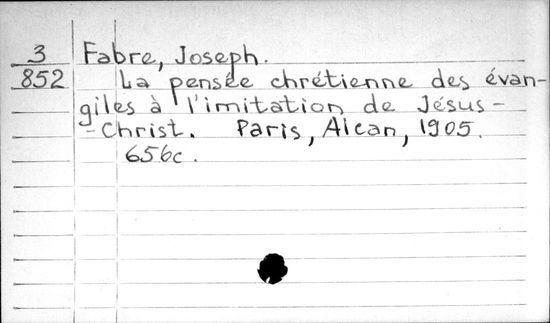 3 Fabre, Joseph.
852 La pensée chrétienne des évan-
giles à l'imitation de Jésus-
-Christ. Paris, Alcan, 1905.
656c.